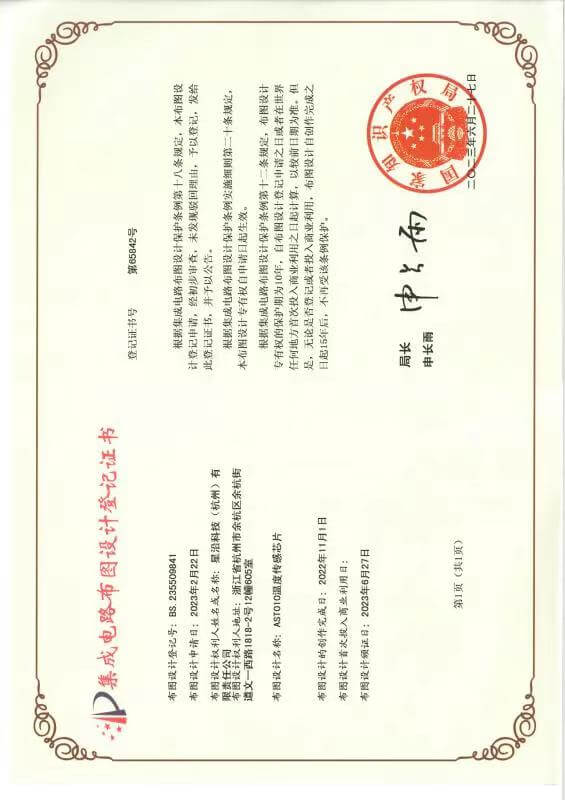 集成电路布图设计登记证书
布图设计登记号：BS. 235509841
布图设计申请日：2023年2月22日
布图设计权利人姓名或名称：星沿科技（杭州）有
限责任公司
布图设计权利人地址：浙江省杭州市余杭区余杭街
道文一西路1818-2号12幢605室
布图设计名称：AST010温度传感芯片
布图设计的创作完成日：2022年11月1日
布图设计首次投入商业利用日：
布图设计颁证日：2023年6月27日
登记证书号 第65842号
根据集成电路布图设计保护条例第十八条规定，本布图设
计登记申请，经初步审查，未发现驳回理由，予以登记，发给
此登记证书，并予以公告。
根据集成电路布图设计保护条例实施细则第二十条规定，
本布图设计专有权自申请日起生效。
根据集成电路布图设计保护条例第十二条规定，布图设计
专有权的保护期为10年，自布图设计登记申请之日或者在世界
任何地方首次投入商业利用之日起计算，以较前日期为准。但
是，无论是否登记或者投入商业利用，布图设计自创作完成之
日起15年后，不再受该条例保护。
局长
申长雨
申长雨
国家知识产权局
二〇二三年六月二十七日
第1页（共1页）